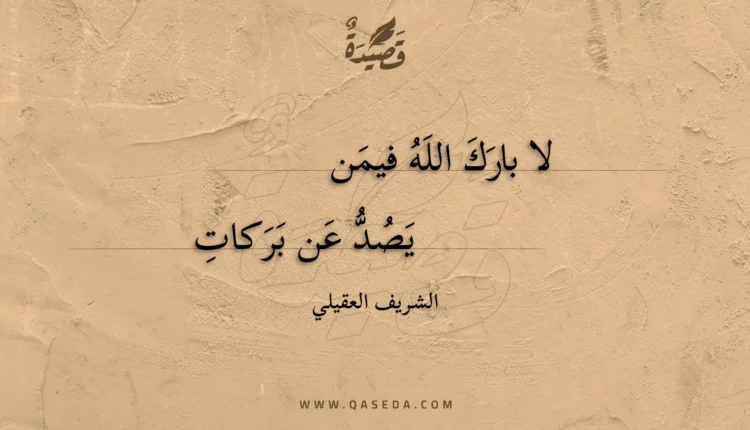 قَصِيدَةٌ
لا بارَكَ اللَهُ فيمَن
يَصُدُّ عَن بَرَكاتِ
الشريف العقيلي
WWW.QASEDA.COM